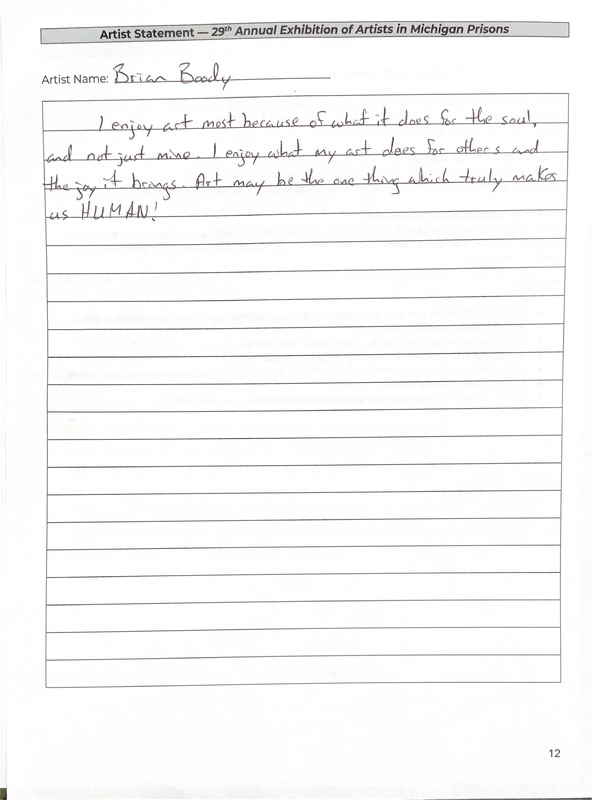 Artist Statement — 29th Annual Exhibition of Artists in Michigan Prisons
Artist Name: Brian Boody
I enjoy art most because of what it does for the soul,
and not just mine. I enjoy what my art does for others and
the joy it brings. Art may be the one thing which truly makes
us HUMAN!
12